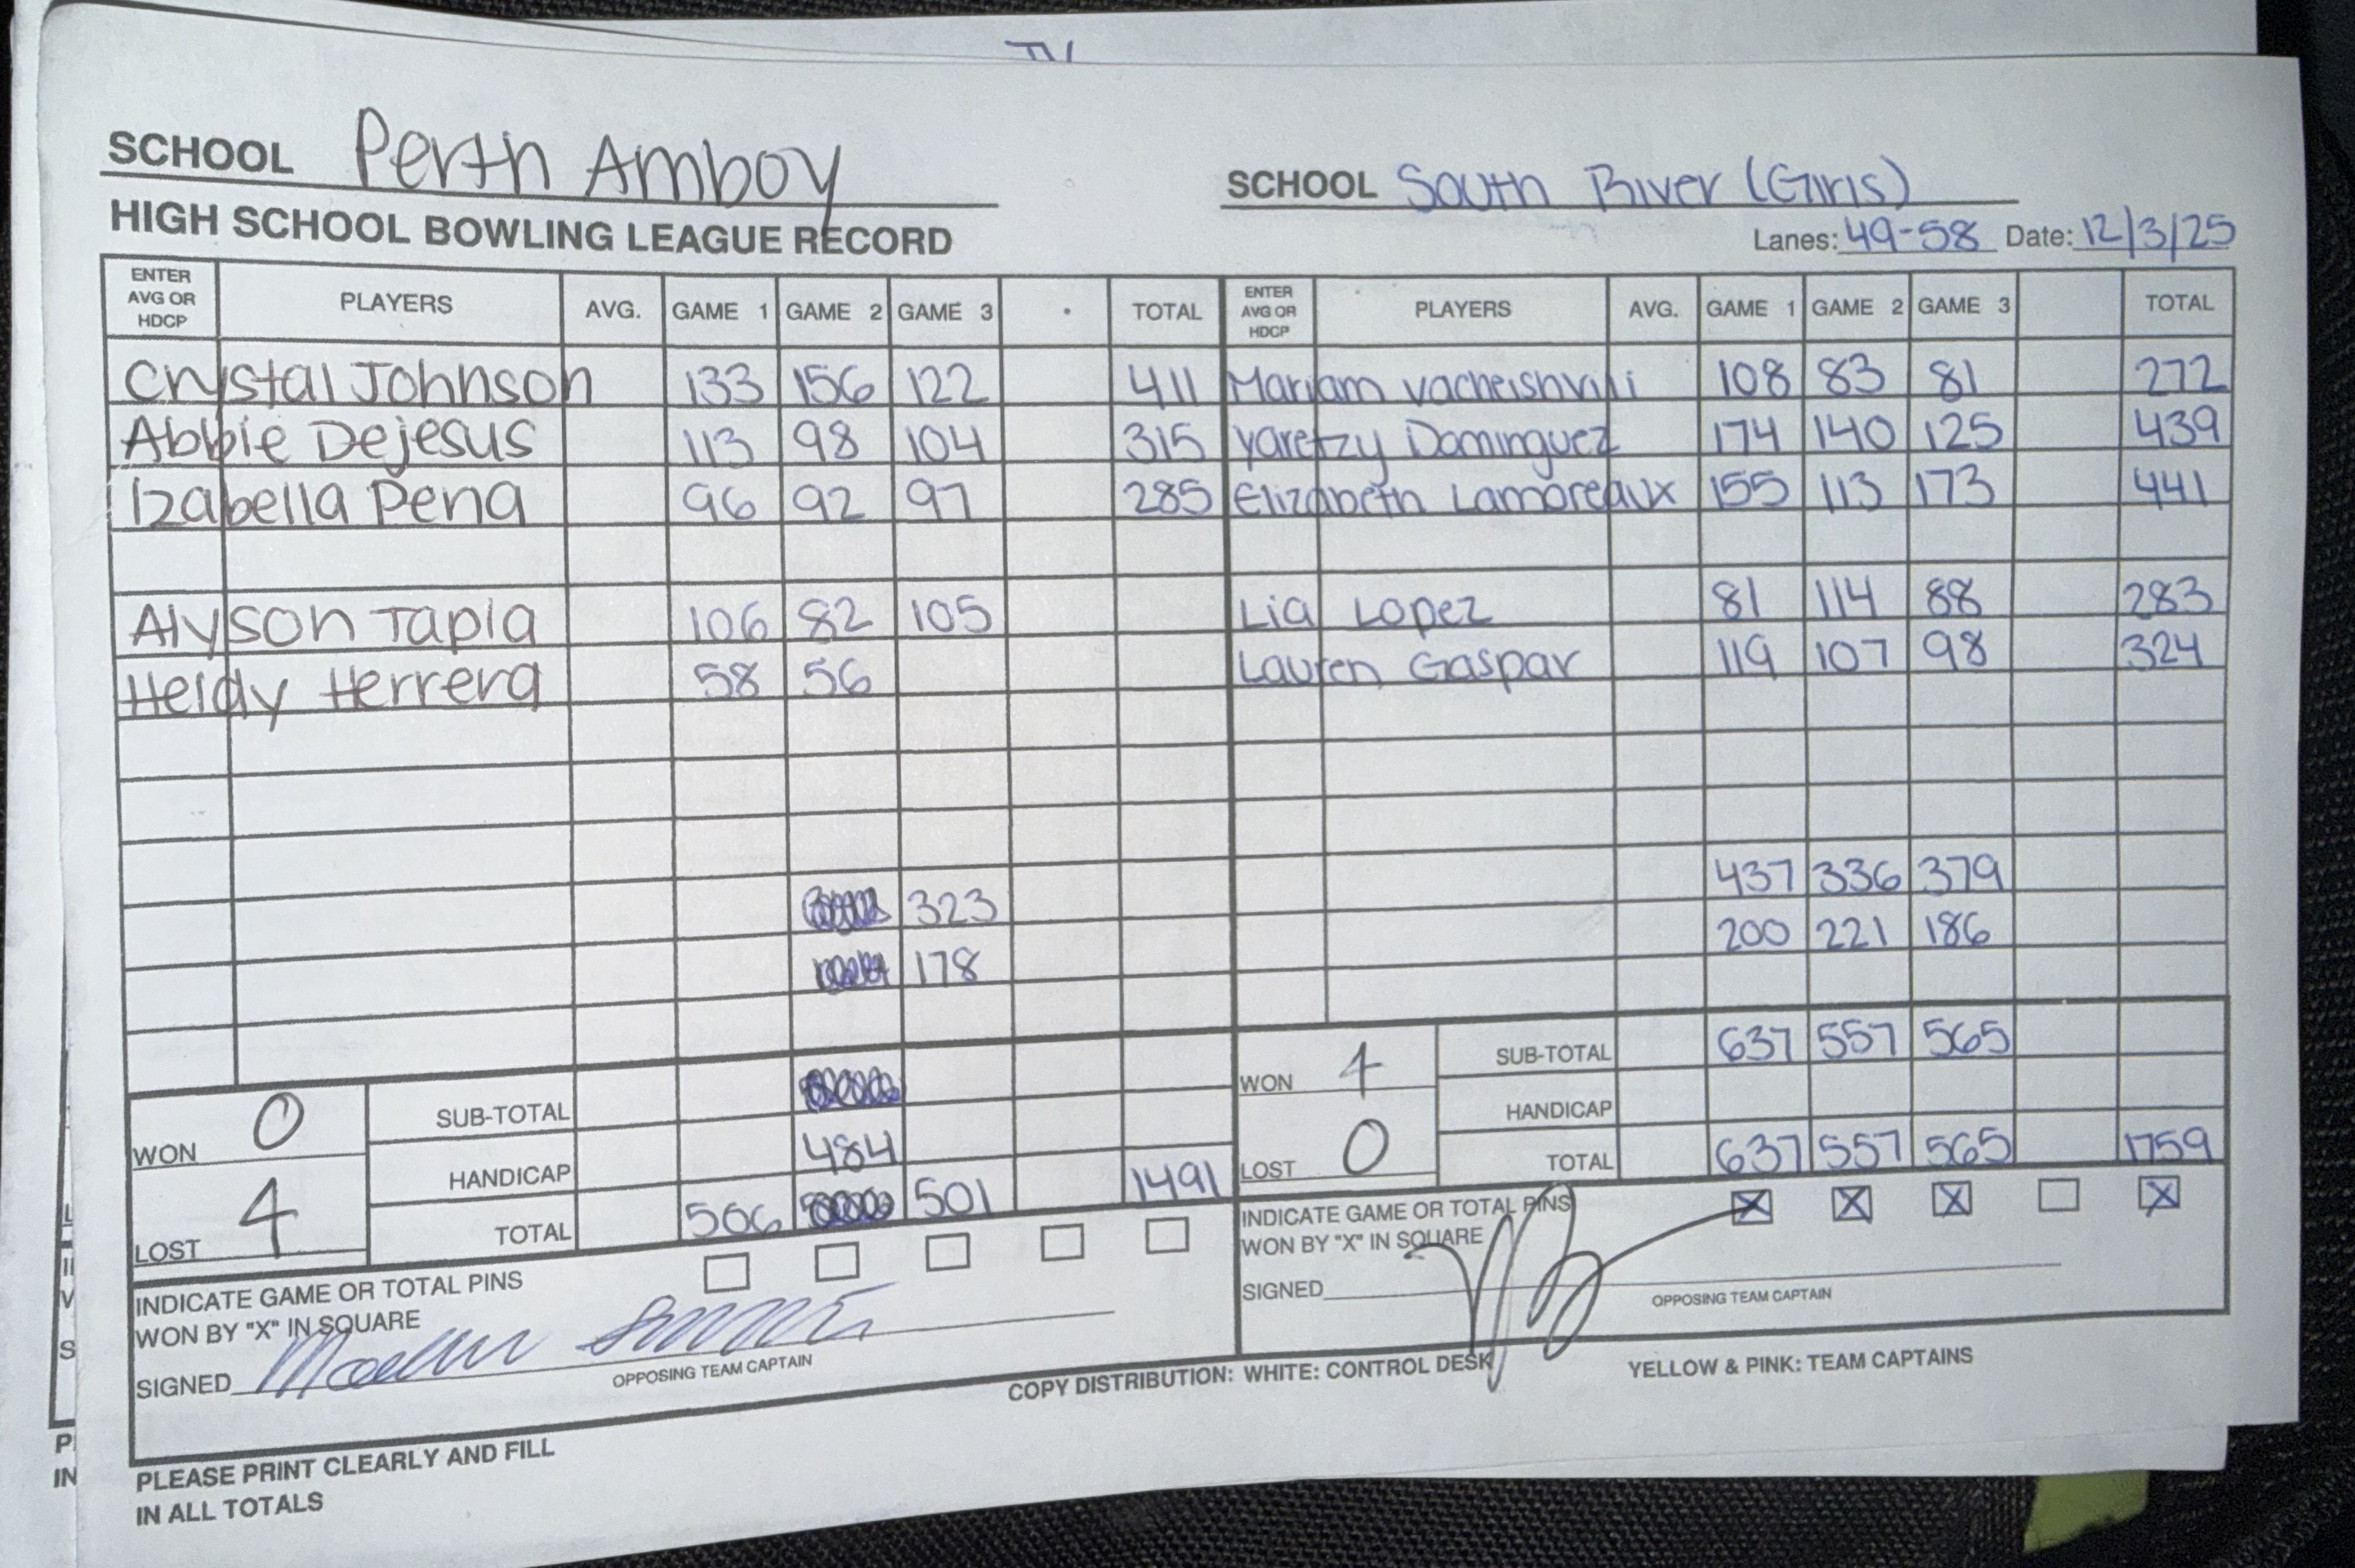 SCHOOL Perth Amboy
SCHOOL South River (Girls)
HIGH SCHOOL BOWLING LEAGUE RECORD
Lanes: 49-58 Date: 12/3/25
ENTER AVG OR HDCP PLAYERS AVG. GAME 1 GAME 2 GAME 3 TOTAL ENTER AVG OR HDCP PLAYERS AVG. GAME 1 GAME 2 GAME 3 TOTAL
Crystal Johnson 133 156 122 411 Mariam vacheishvili 108 83 81 272
Abbie Dejesus 113 98 104 315 Yaretzy Dominguez 174 140 125 439
Izabella Pena 96 92 97 285 Elizabeth Lamoreaux 155 113 173 441
Alyson Tapia 106 82 105 Lia Lopez 81 114 88 283
Heidy Herrera 58 56 Lauren Gaspar 119 107 98 324
323 437 336 379
178 200 221 186
WON 0 SUB-TOTAL WON 4 SUB-TOTAL 637 557 565
HANDICAP 484 HANDICAP
LOST 4 TOTAL 506 501 1491 LOST 0 TOTAL 637 557 565 1759
INDICATE GAME OR TOTAL PINS
WON BY "X" IN SQUARE
SIGNED
OPPOSING TEAM CAPTAIN
INDICATE GAME OR TOTAL PINS X X X X
WON BY "X" IN SQUARE
SIGNED
OPPOSING TEAM CAPTAIN
COPY DISTRIBUTION: WHITE: CONTROL DESK YELLOW & PINK: TEAM CAPTAINS
PLEASE PRINT CLEARLY AND FILL
IN ALL TOTALS